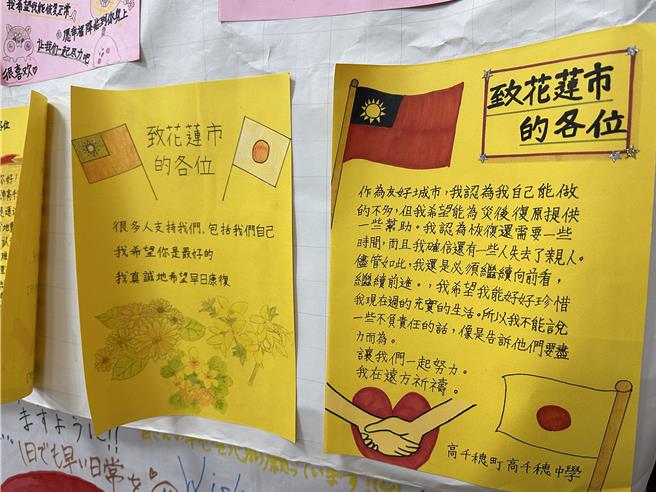 我希望我能恢复正常
讓我们一起尽力吧
很喜欢
致花蓮市
的各位
很多人支持我們，包括我們自己
我希望你是最好的
我真誠地希望早日康復
致花蓮市
的各位
作為友好城市，我認為我自己能做
的不多，但我希望能為災後復原提供
一些幫助。我認為恢復還需要一些
時間，而且我確信還有一些人失去了親人。
儘管如此，我還是必須繼續向前看，
繼續前進。，我希望我能好好珍惜
我現在過的充實的生活。所以我不能說
一些不負責任的話，像是告訴他們要盡
力而為。
讓我們一起努力。
我在遠方祈禱。
高千穗町高千穗中學
ますように!!
1日でも早い日常を